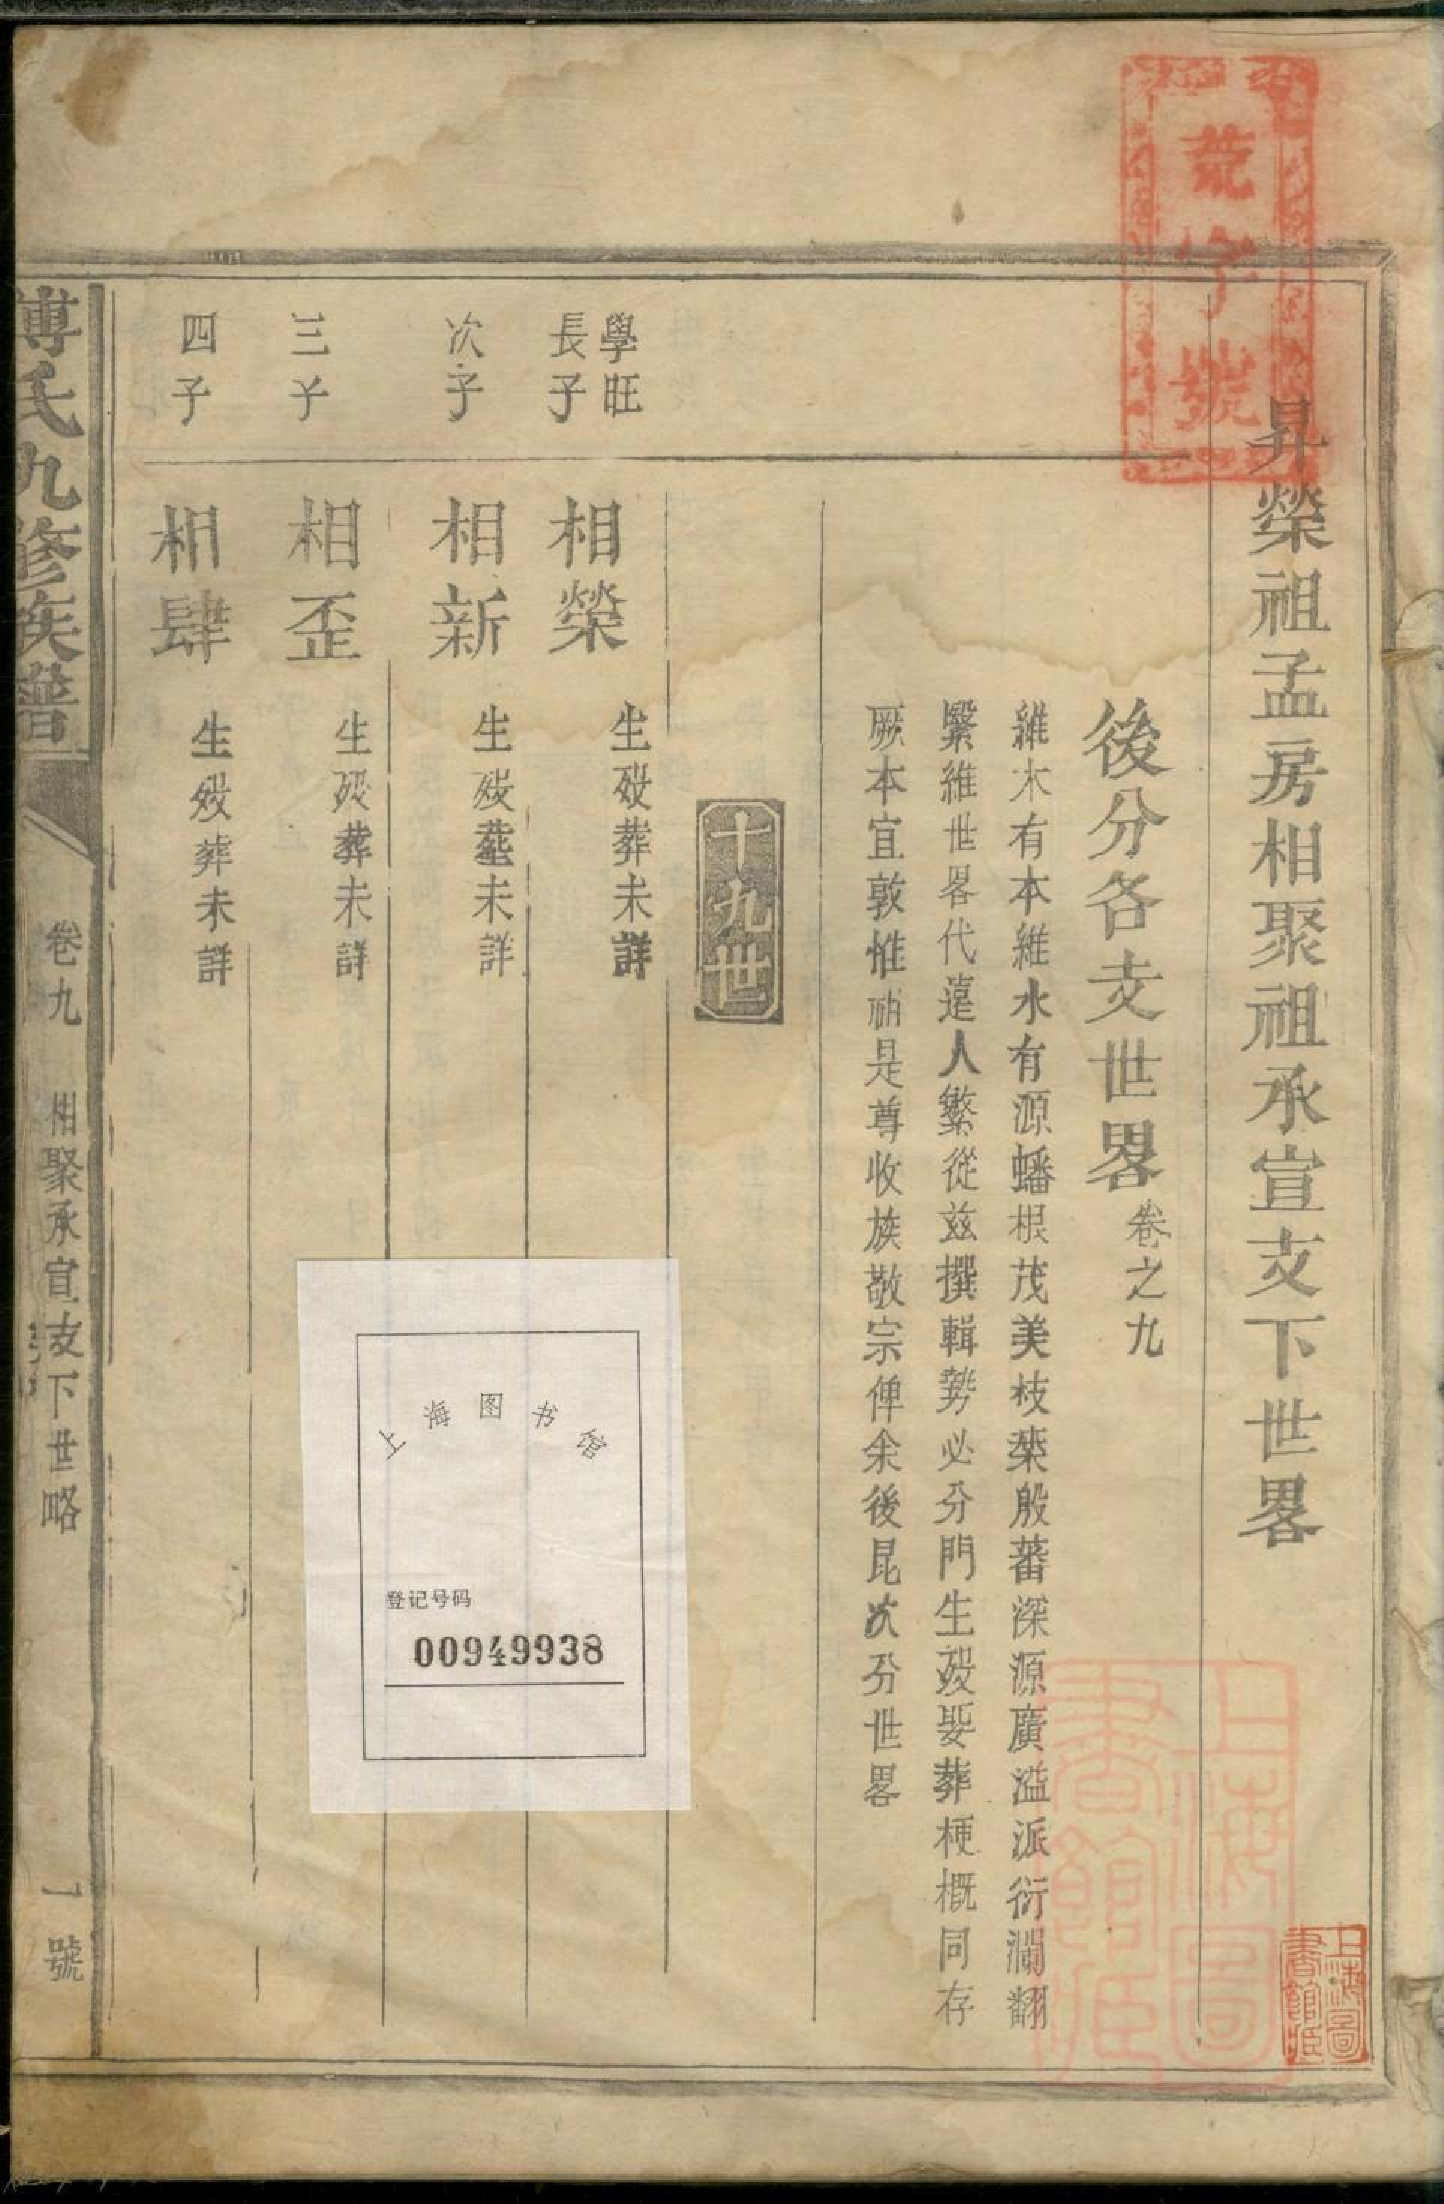 荒字號
昇榮祖孟房相聚祖承宣支下世畧
後分各支世畧 卷之九
維木有本維水有源蟠根茂美枝葉殷蕃深源廣溢派衍瀾翻
繄維世畧代遠人繁從茲撰輯勢必分門生歿娶葬梗概同存
厥本宜敦惟祖是尊收族敬宗俾余後昆次分世畧
十九世
學旺
長子 相榮 生歿葬未詳
次子 相新 生歿葬未詳
三子 相歪 生歿葬未詳
四子 相肆 生歿葬未詳
傅氏九修族譜
卷九 相聚承宣支下世略
一號
上海图书馆
登记号码
00949938
上海圖書館
上海圖書館